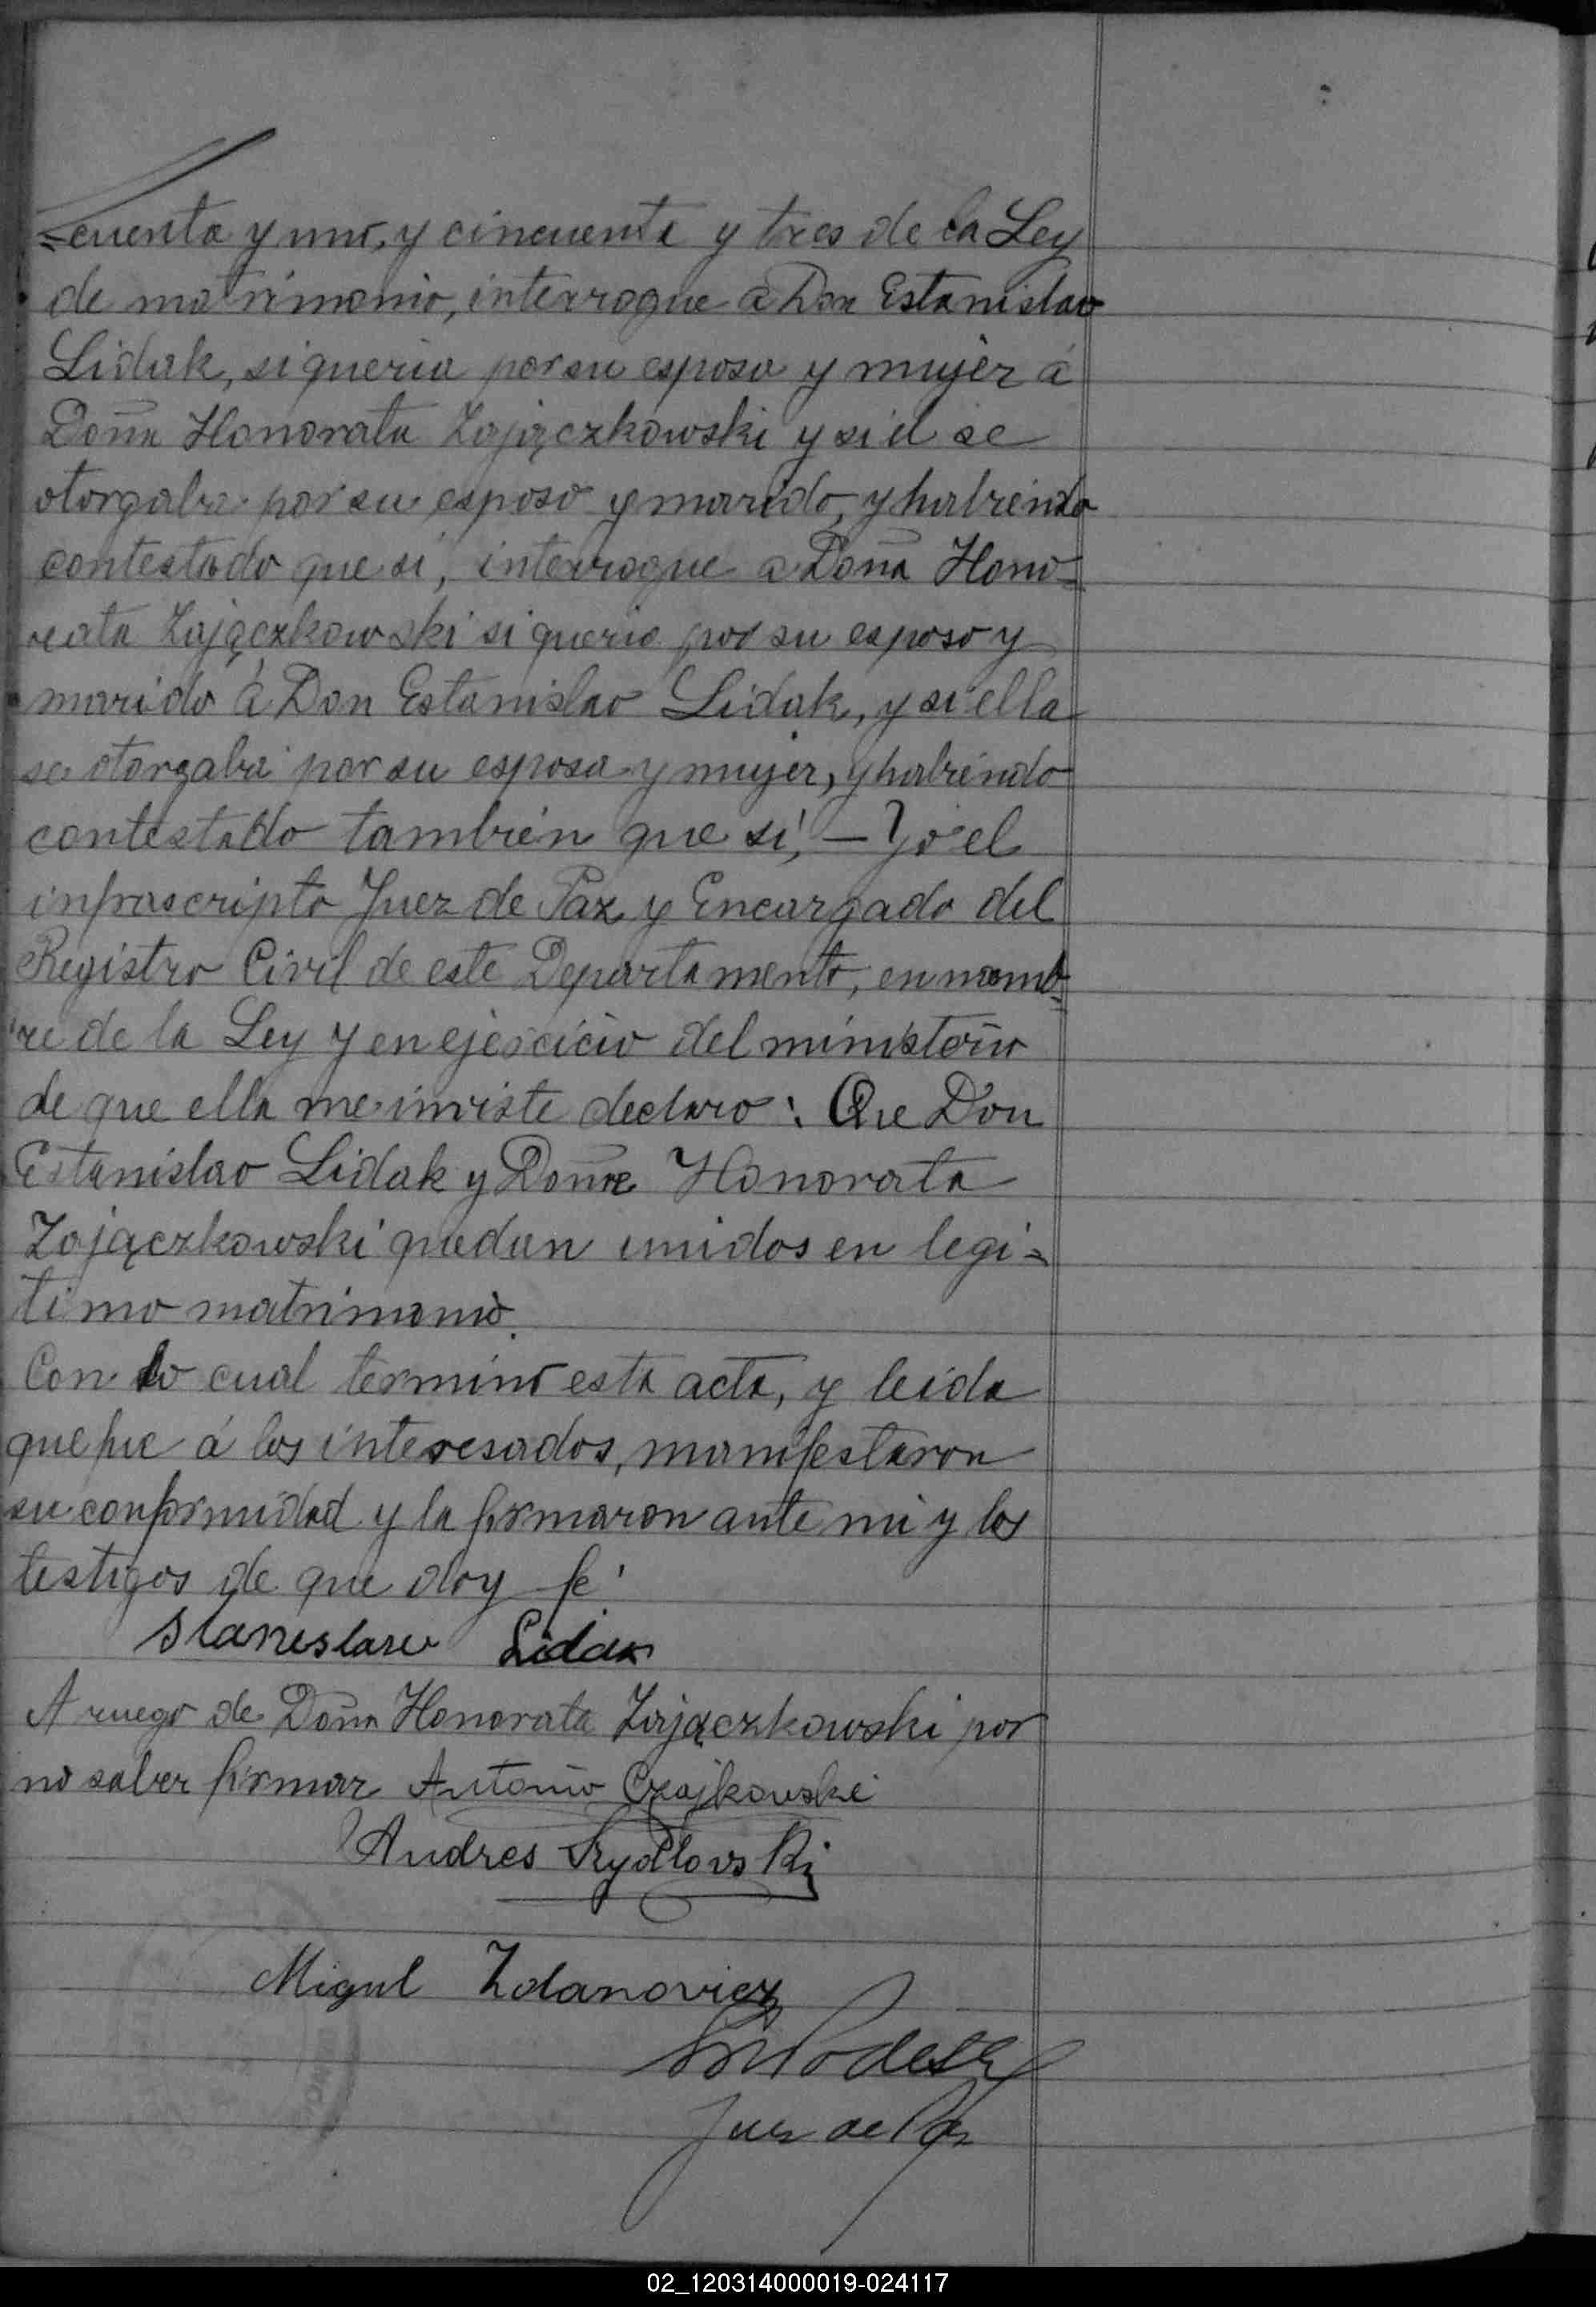 =cuenta y uno, y cincuenta y tres de la Ley
de matrimonio, interrogue a Don Estanislao
Lidak, si queria por su esposa y mujer á
Doña Honorata Zajączkowski y si el se
otorgaba por su esposo y marido, y habiendo
contestado que si, interrogue a Doña Hono=
rata Zajączkowski si queria por su esposo y
marido á Don Estanislao Lidak, y si ella
se otorgaba por su esposa y mujer, y habiendo
contestado también que sí, — Yo el
infrascripto Juez de Paz y Encargado del
Registro Civil de este Departamento, en nomb=
re de la Ley y en ejercicio del ministerio
de que ella me inviste declaro: Que Don
Estanislao Lidak y Doña Honorata
Zajączkowski quedan unidos en legi=
timo matrimonio.
Con lo cual terminó esta acta, y leida
que fue á los interesados, manifestaron
su conformidad y la firmaron ante mi y los
testigos de que doy fé.
Stanislaw Lidak
A ruego de Doña Honorata Zajączkowski por
no saber firmar Antonio Czajkowski
Andres Szydlovski
Migul Zdanovicz
Juez de Paz
02_120314000019-024117